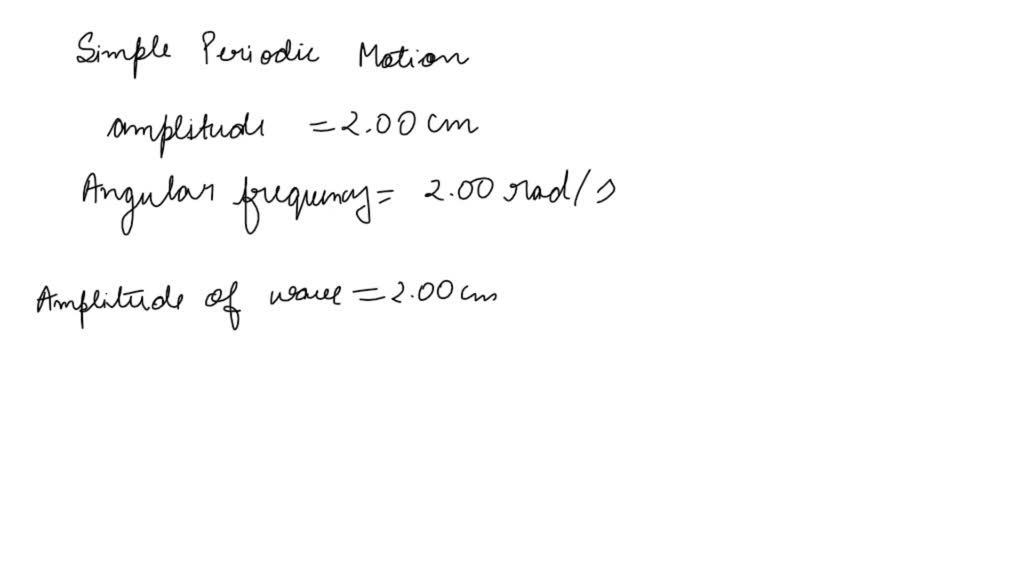 Simple Periodic Motion
amplitude = 2.00 cm
Angular frequency = 2.00 rad/s
Amplitude of wave = 2.00 cm